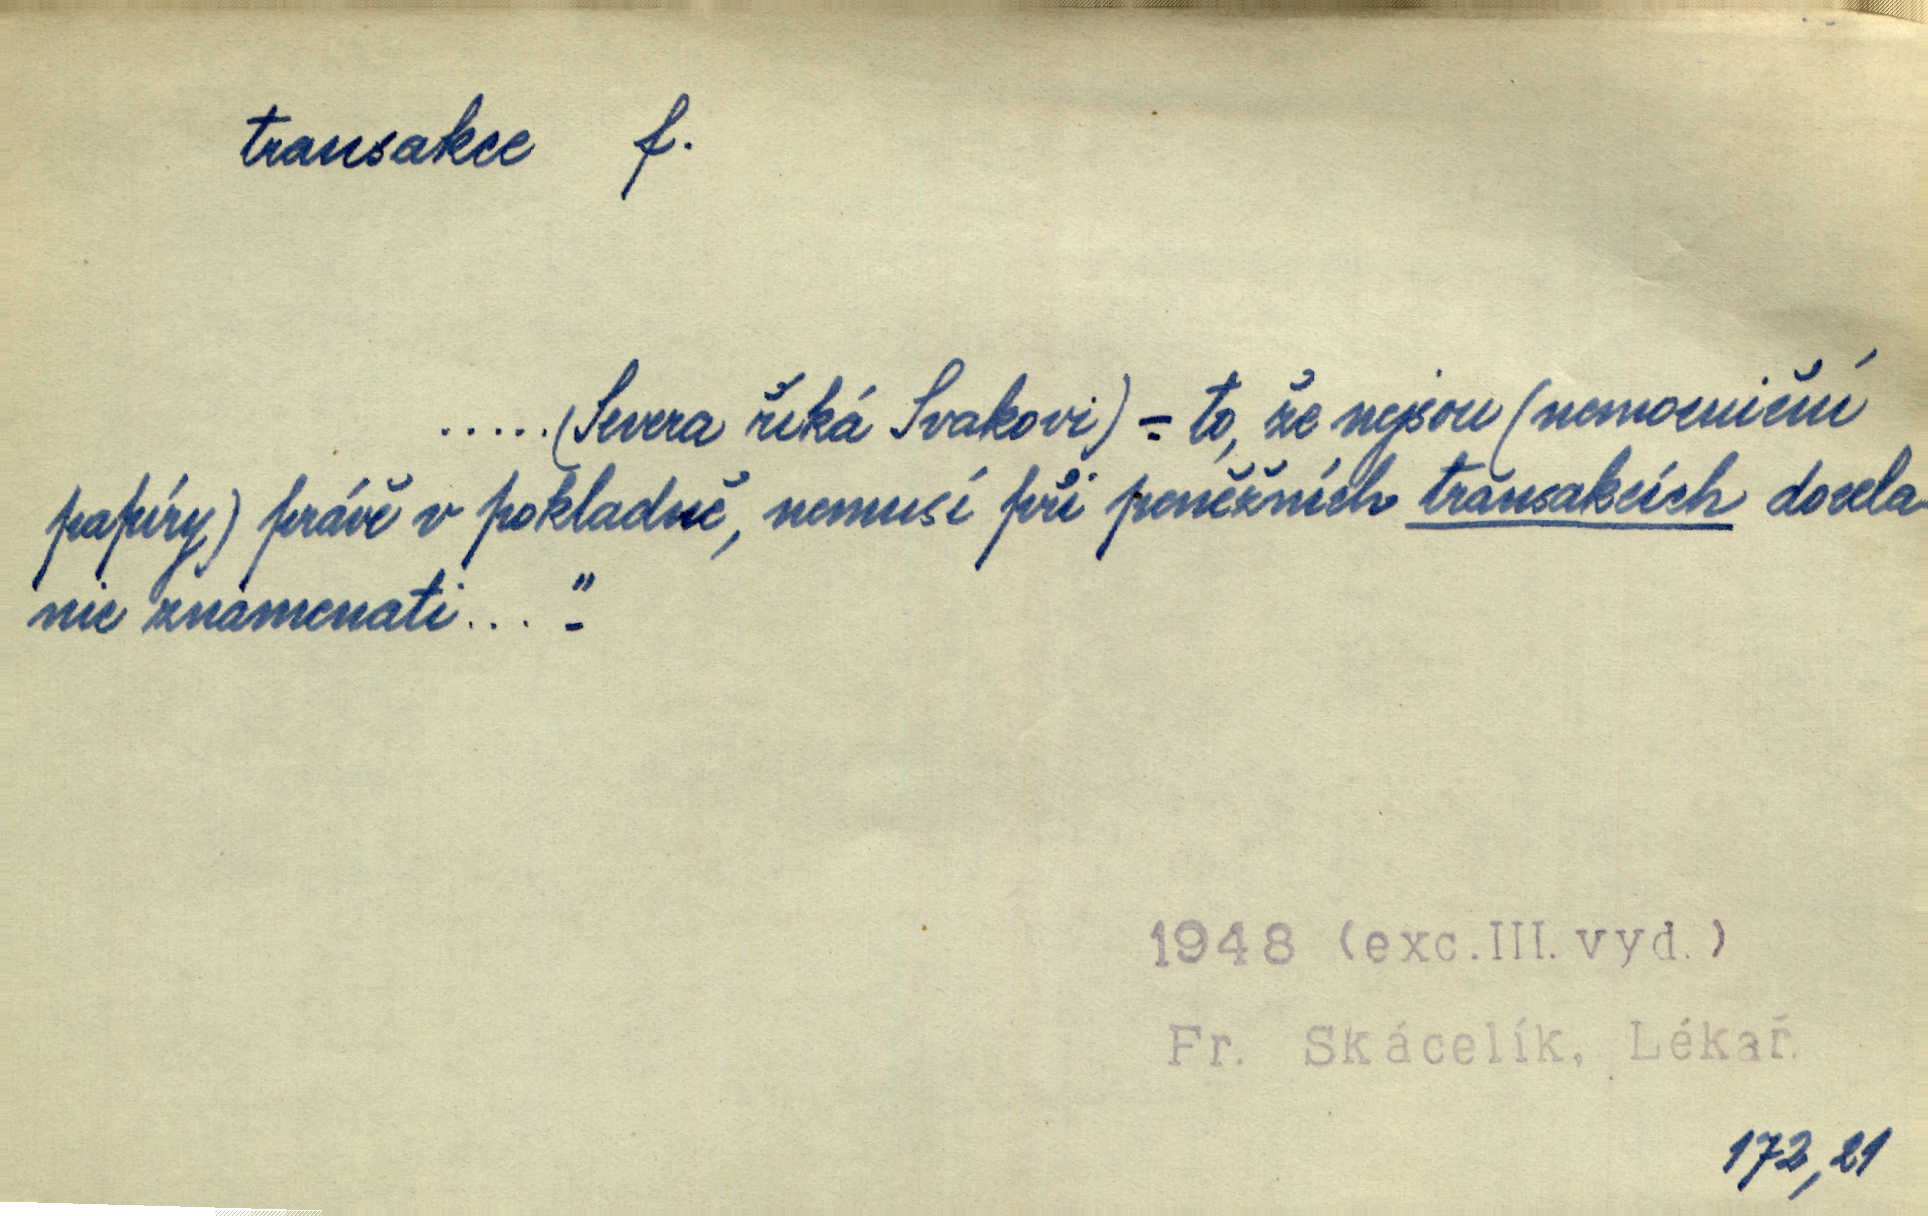 transakce f.
.....(Severa říká Svakovi) = to, že nejsou (nemocniční
papíry) právě v pokladně, nemusí při peněžních transakcích docela
nic znamenati... ."
1948 (exc.III.vyd.)
Fr. Skácelík, Lékař.
172,21